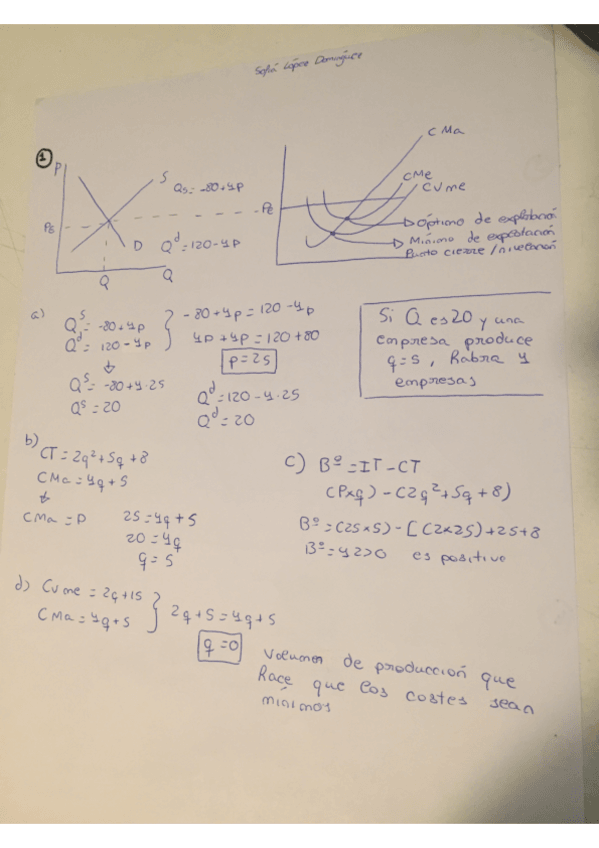 Sofía López Domínguez
1
P
S
Qs = -80+4p
PE
D Qd = 120-4p
Q
Q
CMa
CMe
CVme
PE
Óptimo de explotación
Mínimo de explotación
Punto cierre / nivelación
a)
QS = -80+4p
Qd = 120-4p
-80+4p = 120-4p
4p+4p = 120+80
p=25
QS = -80+4·25
QS = 20
Qd = 120-4·25
Qd = 20
Si Q es 20 y una
empresa produce
q=5, habra 4
empresas
b)
CT = 2q²+5q+8
CMa = 4q+5
CMa = P
25 = 4q+5
20 = 4q
q = 5
c) Bº = IT-CT
(P×q) - (2q²+5q+8)
Bº = (25×5) - [(2×25)+25+8
Bº = 42>0 es positivo
d) CVme = 2q+15
CMa = 4q+5
2q+5 = 4q+5
q=0
Volumen de producción que
hace que los costes sean
mínimos